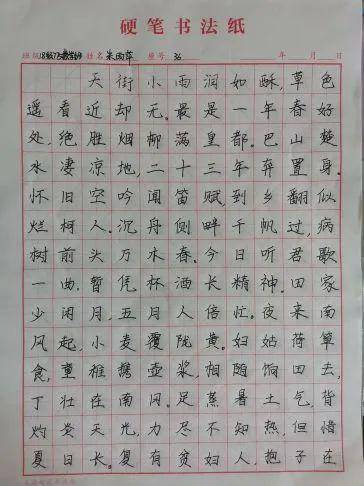 硬笔书法纸
班级 18级73数学班 姓名 朱雨萍 座号 36 年 月 日
天街小雨润如酥,草色
遥看近却无。最是一年春好
处,绝胜烟柳满皇都。巴山楚
水凄凉地,二十三年弃置身。
怀旧空吟闻笛赋到乡翻似
烂柯人。沉舟侧畔千帆过,病
树前头万木春。今日听君歌
一曲,暂凭杯酒长精神。田家
少闲月,五月人倍忙。夜来南
风起,小麦覆陇黄。妇姑荷箪
食,童稚携壶浆,相随饷田去,
丁壮在南冈。足蒸暑土气,背
灼炎天光,力尽不知热,但惜
夏日长。复有贫妇人,抱子在